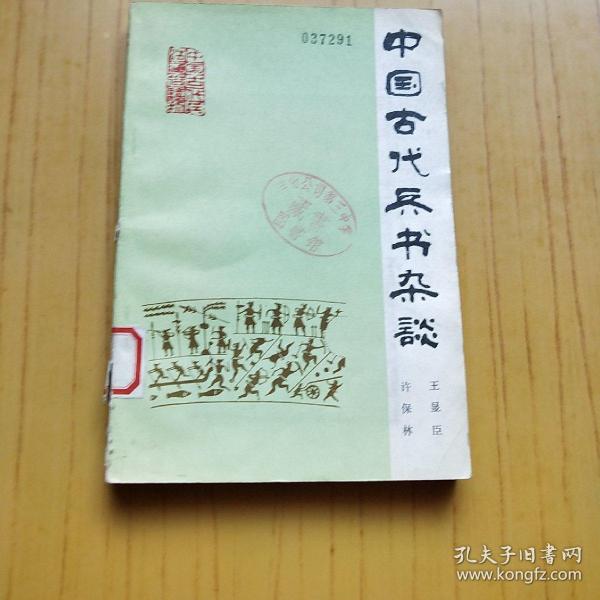 037291
中国古代兵书杂談
王显臣
许保林
中国古代兵书杂谈
孔夫子旧书网
www.kongfz.com